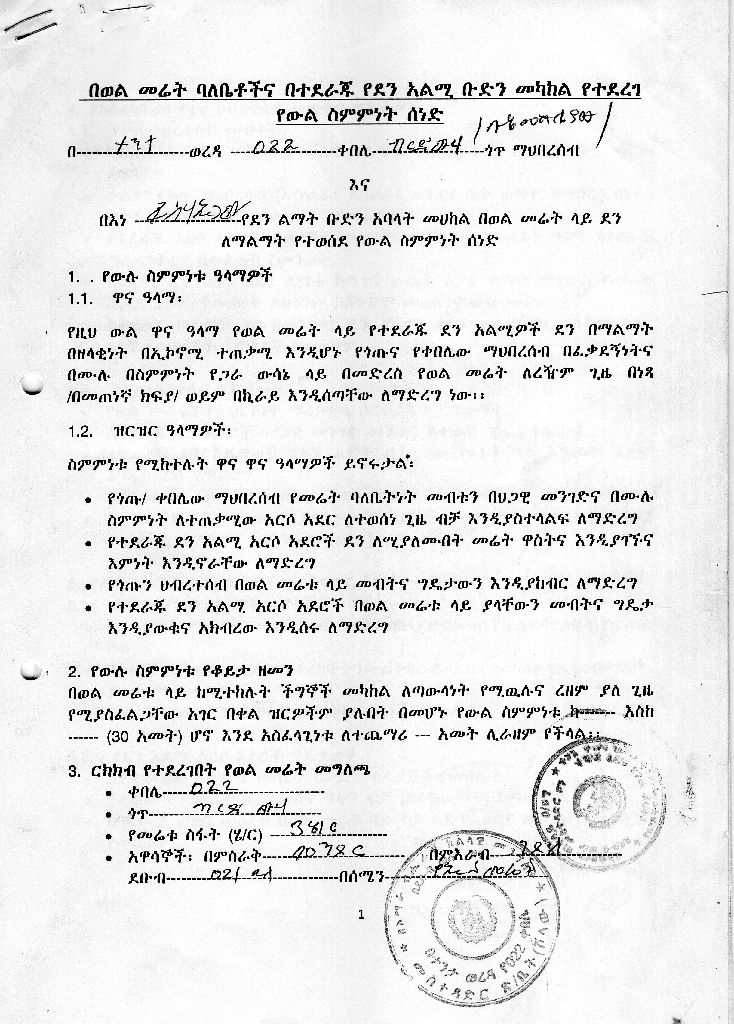 በወል መሬት ባለቤቶችና በተደራጁ የደን አልሚ ቡድን መካከል የተደረገ
የውል ስምምነት ሰነድ
በ-----------ተንታ--------ወረዳ -----022--------ቀበሌ-----------ጎጥ ማህበረሰብ
እና
በእነ ---------------የደን ልማት ቡድን አባላት መሀከል በወል መሬት ላይ ደን
ለማልማት የተወሰደ የውል ስምምነት ሰነድ
1. . የውሉ ስምምነቱ ዓላማዎች
1.1. ዋና ዓላማ፡
የዚህ ውል ዋና ዓላማ የወል መሬት ላይ የተደራጁ ደን አልሚዎች ደን በማልማት
በዘላቂነት በኢኮኖሚ ተጠቃሚ እንዲሆኑ የጎጡና የቀበሌው ማህበረሰብ በፈቃደኝነትና
በሙሉ በስምምነት የጋራ ውሳኔ ላይ በመድረስ የወል መሬት ለረዥም ጊዜ በነጻ
/በመጠነኛ ክፍያ/ ወይም በኪራይ እንዲሰጣቸው ለማድረግ ነው፡፡
1.2. ዝርዝር ዓላማዎች፡
ስምምነቱ የሚከተሉት ዋና ዋና ዓላማዎች ይኖሩታል፡
• የጎጡ/ ቀበሌው ማህበረሰብ የመሬት ባለቤትነት መብቱን በህጋዊ መንገድና በሙሉ
ስምምነት ለተጠቃሚው አርሶ አደር ለተወሰነ ጊዜ ብቻ እንዲያስተላልፍ ለማድረግ
• የተደራጁ ደን አልሚ አርሶ አደሮች ደን ለሚያለሙበት መሬት ዋስትና እንዲያገኙና
እምነት እንዲኖራቸው ለማድረግ
• የጎጡን ህብረተሰብ በወል መሬቱ ላይ መብትና ግዴታውን እንዲያከብር ለማድረግ
• የተደራጁ ደን አልሚ አርሶ አደሮች በወል መሬቱ ላይ ያላቸውን መብትና ግዴታ
እንዲያውቁና አክብረው እንዲሰሩ ለማድረግ
2. የውሉ ስምምነቱ የቆይታ ዘመን
በወል መሬቱ ላይ ከሚተከሉት ችግኞች መካከል ለጣውላነት የሚዉሉና ረዘም ያለ ጊዜ
የሚያስፈልጋቸው አገር በቀል ዝርዎችም ያሉበት በመሆኑ የውል ስምምነቱ ከ------- እስከ
------ (30 አመት) ሆኖ እንደ አስፈላጊነቱ ለተጨማሪ --- አመት ሊራዘም የችላል፡፡
3. ርክክብ የተደረገበት የወል መሬት መግለጫ
• ቀበሌ------022----------------
• ጎጥ -----------------------
• የመሬቱ ስፋት (ሄ/ር) --------------
• አዋሳኞች፡ በምስራቅ---------------- በምእራብ------------------
ደቡብ-----------------------በሰሜን----------------------
1